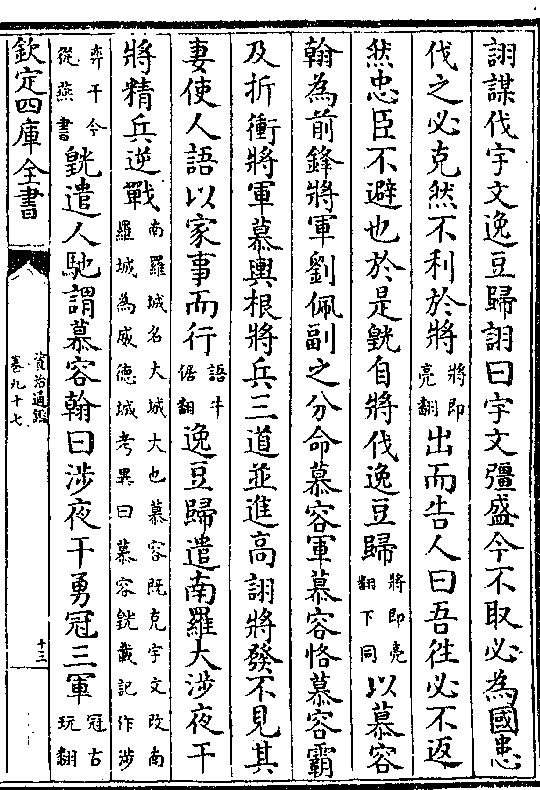 詡謀伐宇文逸豆歸詡曰宇文彊盛今不取必為國患
伐之必克然不利於將將即亮翻出而告人曰吾往必不返
然忠臣不避也於是皝自將伐逸豆歸將即亮翻下同以慕容
翰為前鋒將軍劉佩副之分命慕容軍慕容恪慕容霸
及折衝將軍慕輿根將兵三道並進高詡將發不見其
妻使人語以家事而行語牛倨翻逸豆歸遣南羅大涉夜干
將精兵逆戰南羅城名大城大也慕容既克宇文改南羅城為威德城考異曰慕容皝載記作涉
弈干今從燕書皝遣人馳謂慕容翰曰涉夜干勇冠三軍冠古玩翻
欽定四庫全書
資治通鑑
卷九十七
十三